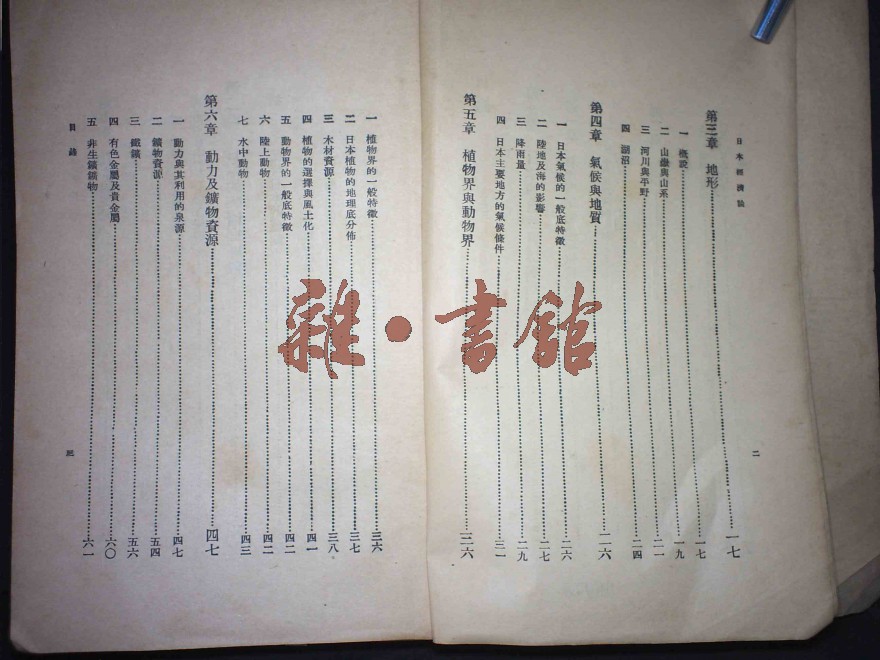 日本經濟論
第三章　地形……一七
一　概說……一七
二　山嶽與山系……一九
三　河川與平野……二一
四　湖沼……二四
第四章　氣候與地質……二六
一　日本氣候的一般底特徵……二六
二　陸地及海的影響……二七
三　降雨量……二九
四　日本主要地方的氣候條件……三一
第五章　植物界與動物界……三六
二
一　植物界的一般特徵……三六
二　日本植物的地理底分佈……三七
三　木材資源……三八
四　植物的選擇與風土化……四一
五　動物界的一般底特徵……四二
六　陸上動物……四二
七　水中動物……四三
第六章　動力及鑛物資源……四七
一　動力與其利用的泉源……四七
二　鑛物資源……五四
三　鐵鑛……五六
四　有色金屬及貴金屬……六〇
五　非生鑛鑛物……六一
目錄
三
雜·書館